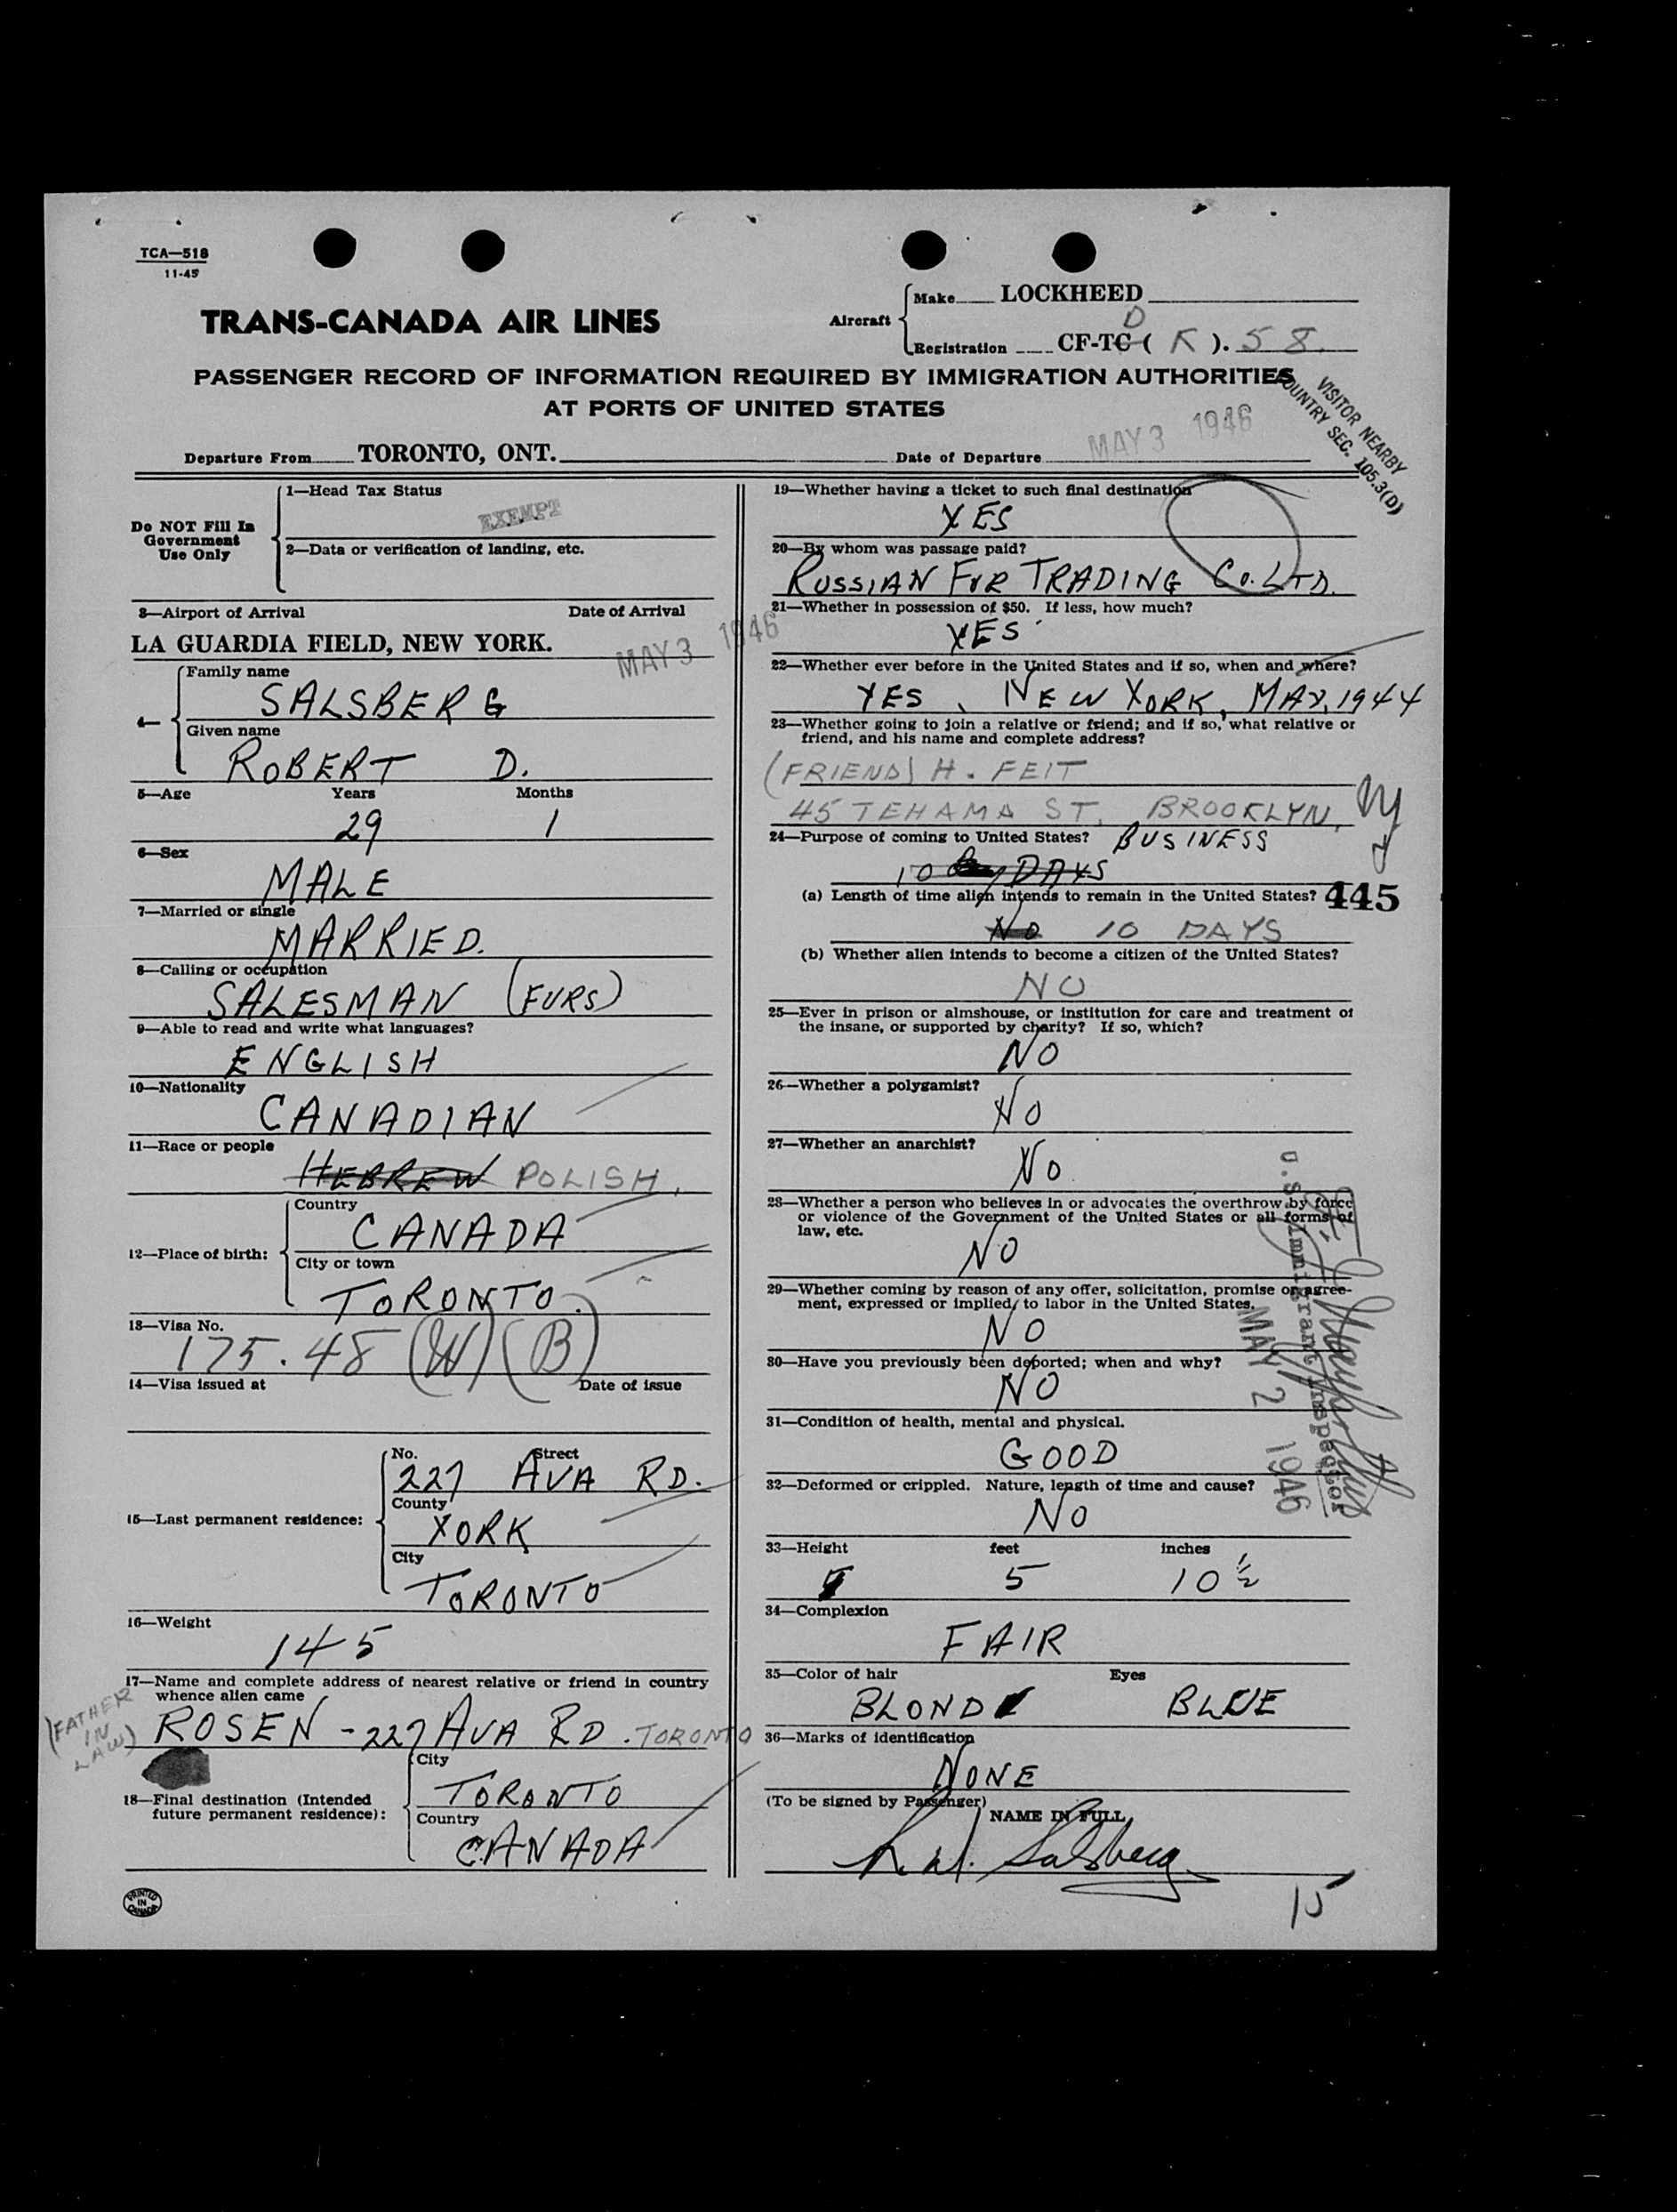 TCA—518
11-45
TRANS-CANADA AIR LINES
Aircraft
Make LOCKHEED
D
Registration CF-TC ( K ). 58
PASSENGER RECORD OF INFORMATION REQUIRED BY IMMIGRATION AUTHORITIES
AT PORTS OF UNITED STATES
VISITOR NEARBY
COUNTRY SEC. 105.3(D)
Departure From TORONTO, ONT. Date of Departure MAY 3 1946
Do NOT Fill In
Government
Use Only
1—Head Tax Status
EXEMPT
2—Data or verification of landing, etc.
3—Airport of Arrival Date of Arrival
LA GUARDIA FIELD, NEW YORK. MAY 3 1946
4—
Family name
SALSBERG
Given name
ROBERT D.
5—Age Years Months
29 1
6—Sex
MALE
7—Married or single
MARRIED.
8—Calling or occupation
SALESMAN (FURS)
9—Able to read and write what languages?
ENGLISH
10—Nationality
CANADIAN
11—Race or people
HEBREW POLISH.
12—Place of birth:
Country
CANADA
City or town
TORONTO.
13—Visa No.
175.48 (W) (B)
14—Visa issued at Date of issue
15—Last permanent residence:
No. Street
227 AVA RD.
County
YORK
City
TORONTO
16—Weight
145
17—Name and complete address of nearest relative or friend in country
whence alien came
(FATHER
IN
LAW)
ROSEN - 227 AVA RD. TORONTO
18—Final destination (Intended
future permanent residence):
City
TORONTO
Country
CANADA
PRINTED
IN
CANADA
19—Whether having a ticket to such final destination
YES
20—By whom was passage paid?
RUSSIAN FUR TRADING Co. LTD.
21—Whether in possession of $50. If less, how much?
YES
22—Whether ever before in the United States and if so, when and where?
YES, NEW YORK, MAY, 1944
23—Whether going to join a relative or friend; and if so, what relative or
friend, and his name and complete address?
(FRIEND) H. FEIT
45 TEHAMA ST. BROOKLYN, NY
24—Purpose of coming to United States? BUSINESS
10 DAYS
(a) Length of time alien intends to remain in the United States? 445
NO 10 DAYS
(b) Whether alien intends to become a citizen of the United States?
NO
25—Ever in prison or almshouse, or institution for care and treatment of
the insane, or supported by charity? If so, which?
NO
26—Whether a polygamist?
NO
27—Whether an anarchist?
NO
28—Whether a person who believes in or advocates the overthrow by force
or violence of the Government of the United States or all forms of
law, etc.
NO
29—Whether coming by reason of any offer, solicitation, promise or agree-
ment, expressed or implied, to labor in the United States.
NO
30—Have you previously been deported; when and why?
NO
31—Condition of health, mental and physical.
GOOD
32—Deformed or crippled. Nature, length of time and cause?
NO
U.S. Immigrant Inspector
MAY 2 1946
33—Height feet inches
5 10 1/2
34—Complexion
FAIR
35—Color of hair Eyes
BLOND BLUE
36—Marks of identification
NONE
(To be signed by Passenger)
NAME IN FULL
Salsberg
15